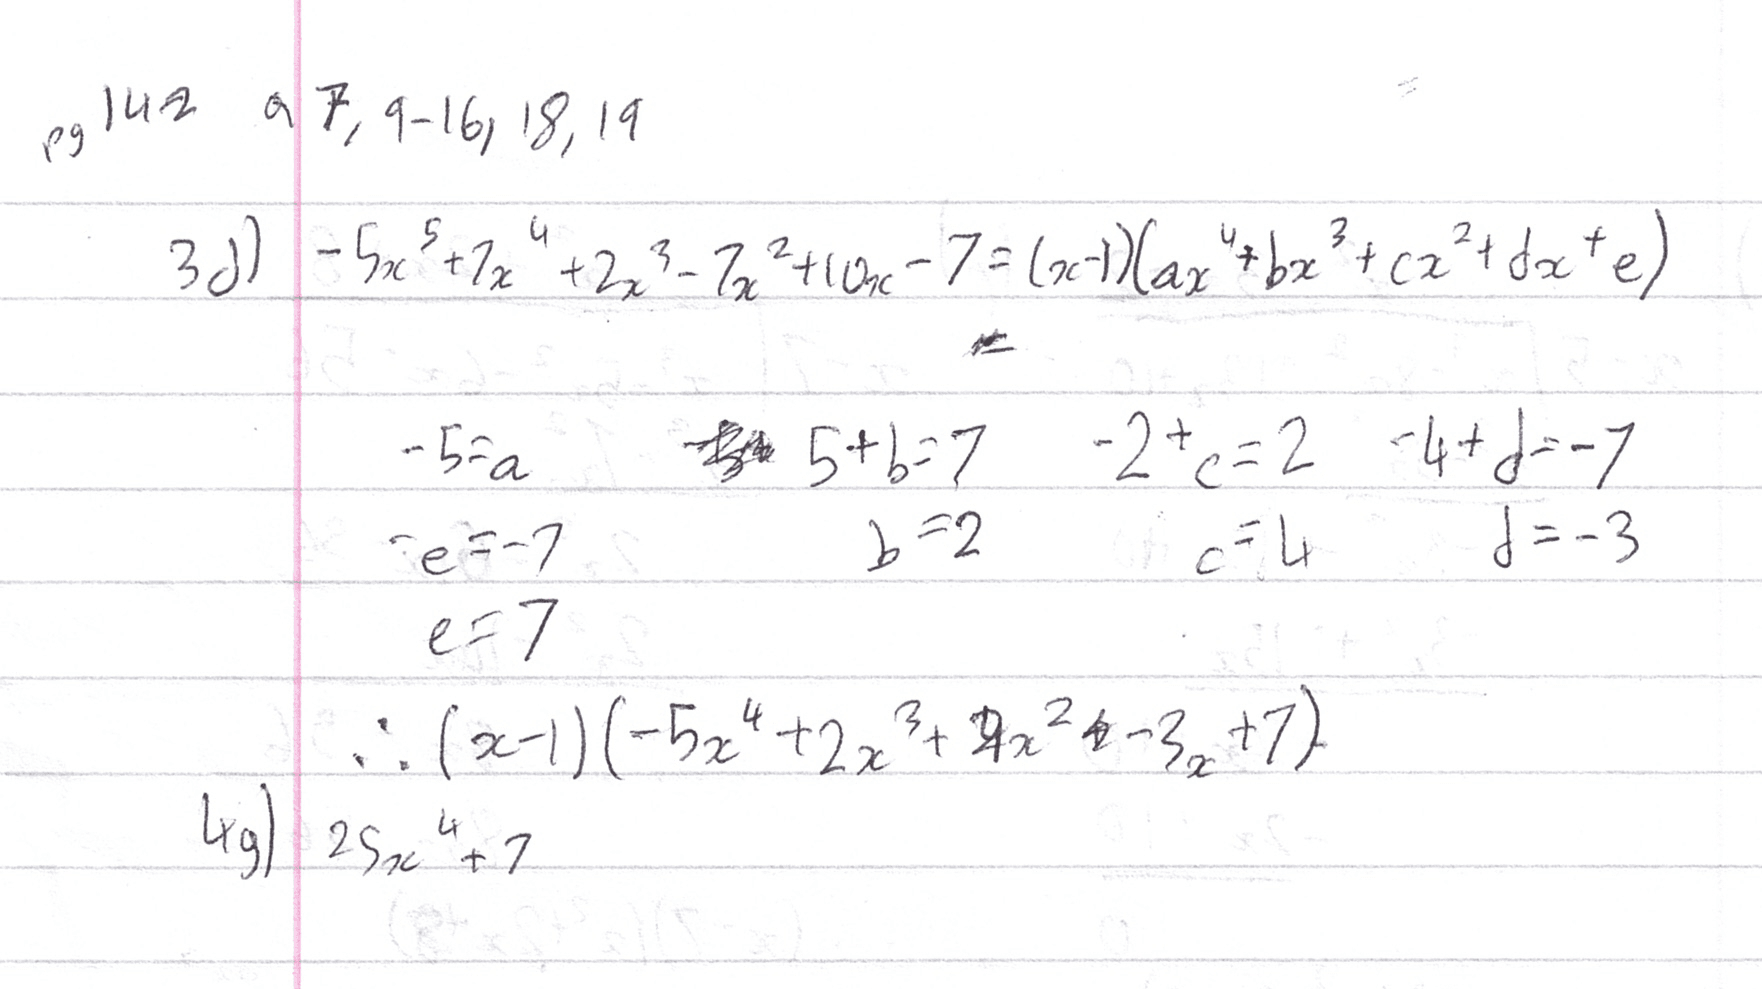 pg 142 Q 7, 9-16, 18, 19
3d) -5x⁵+7x⁴+2x³-7x²+10x-7=(x-1)(ax⁴+bx³+cx²+dx+e)
-5=a 5+b=7 -2+c=2 -4+d=-7
-e=-7 b=2 c=4 d=-3
e=7
∴ (x-1)(-5x⁴+2x³+4x²-3x+7)
4g) 25x⁴+7